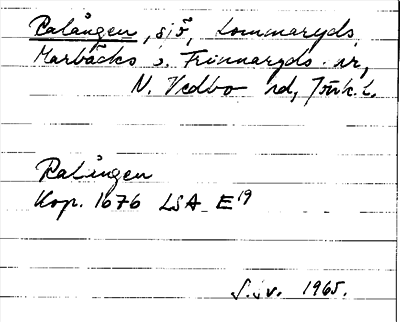 Ralången, sjö, Lommaryds,
Marbäcks o. Frinnaryds sr,
N. Vedbo hd, Jönk. l.
Ralången
Kop. 1676 LSA E19
1965.